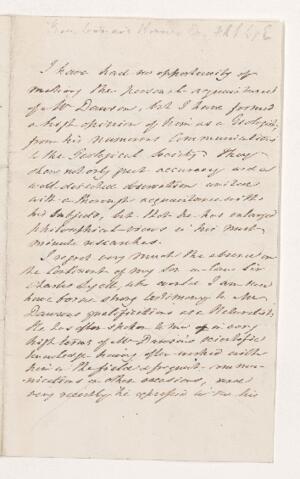 From Leonard Horner Esq. F.R.S.
I have had no opportunity of
making the personal acquaintance
of Mr Dawson, but I have formed
a high opinion of him as a Geologist,
from his numerous Communications
to the Geological Society. They
show not only great accuracy and
well detailed observation united
with a thorough acquaintance with
his subjects, but that he has enlarged
philosophical views in his most
minute researches.
I regret very much the absence on
the Continent of my Son in law Sir
Charles Lyell, who would I am sure
have borne strong testimony to Mr
Dawson's qualifications as a Naturalist.
He has often spoken to me in very
high terms of Mr Dawson's scientific
knowledge having often worked with
him in the field & frequent commu-
nications on other occasions, and
very recently he expressed to me his